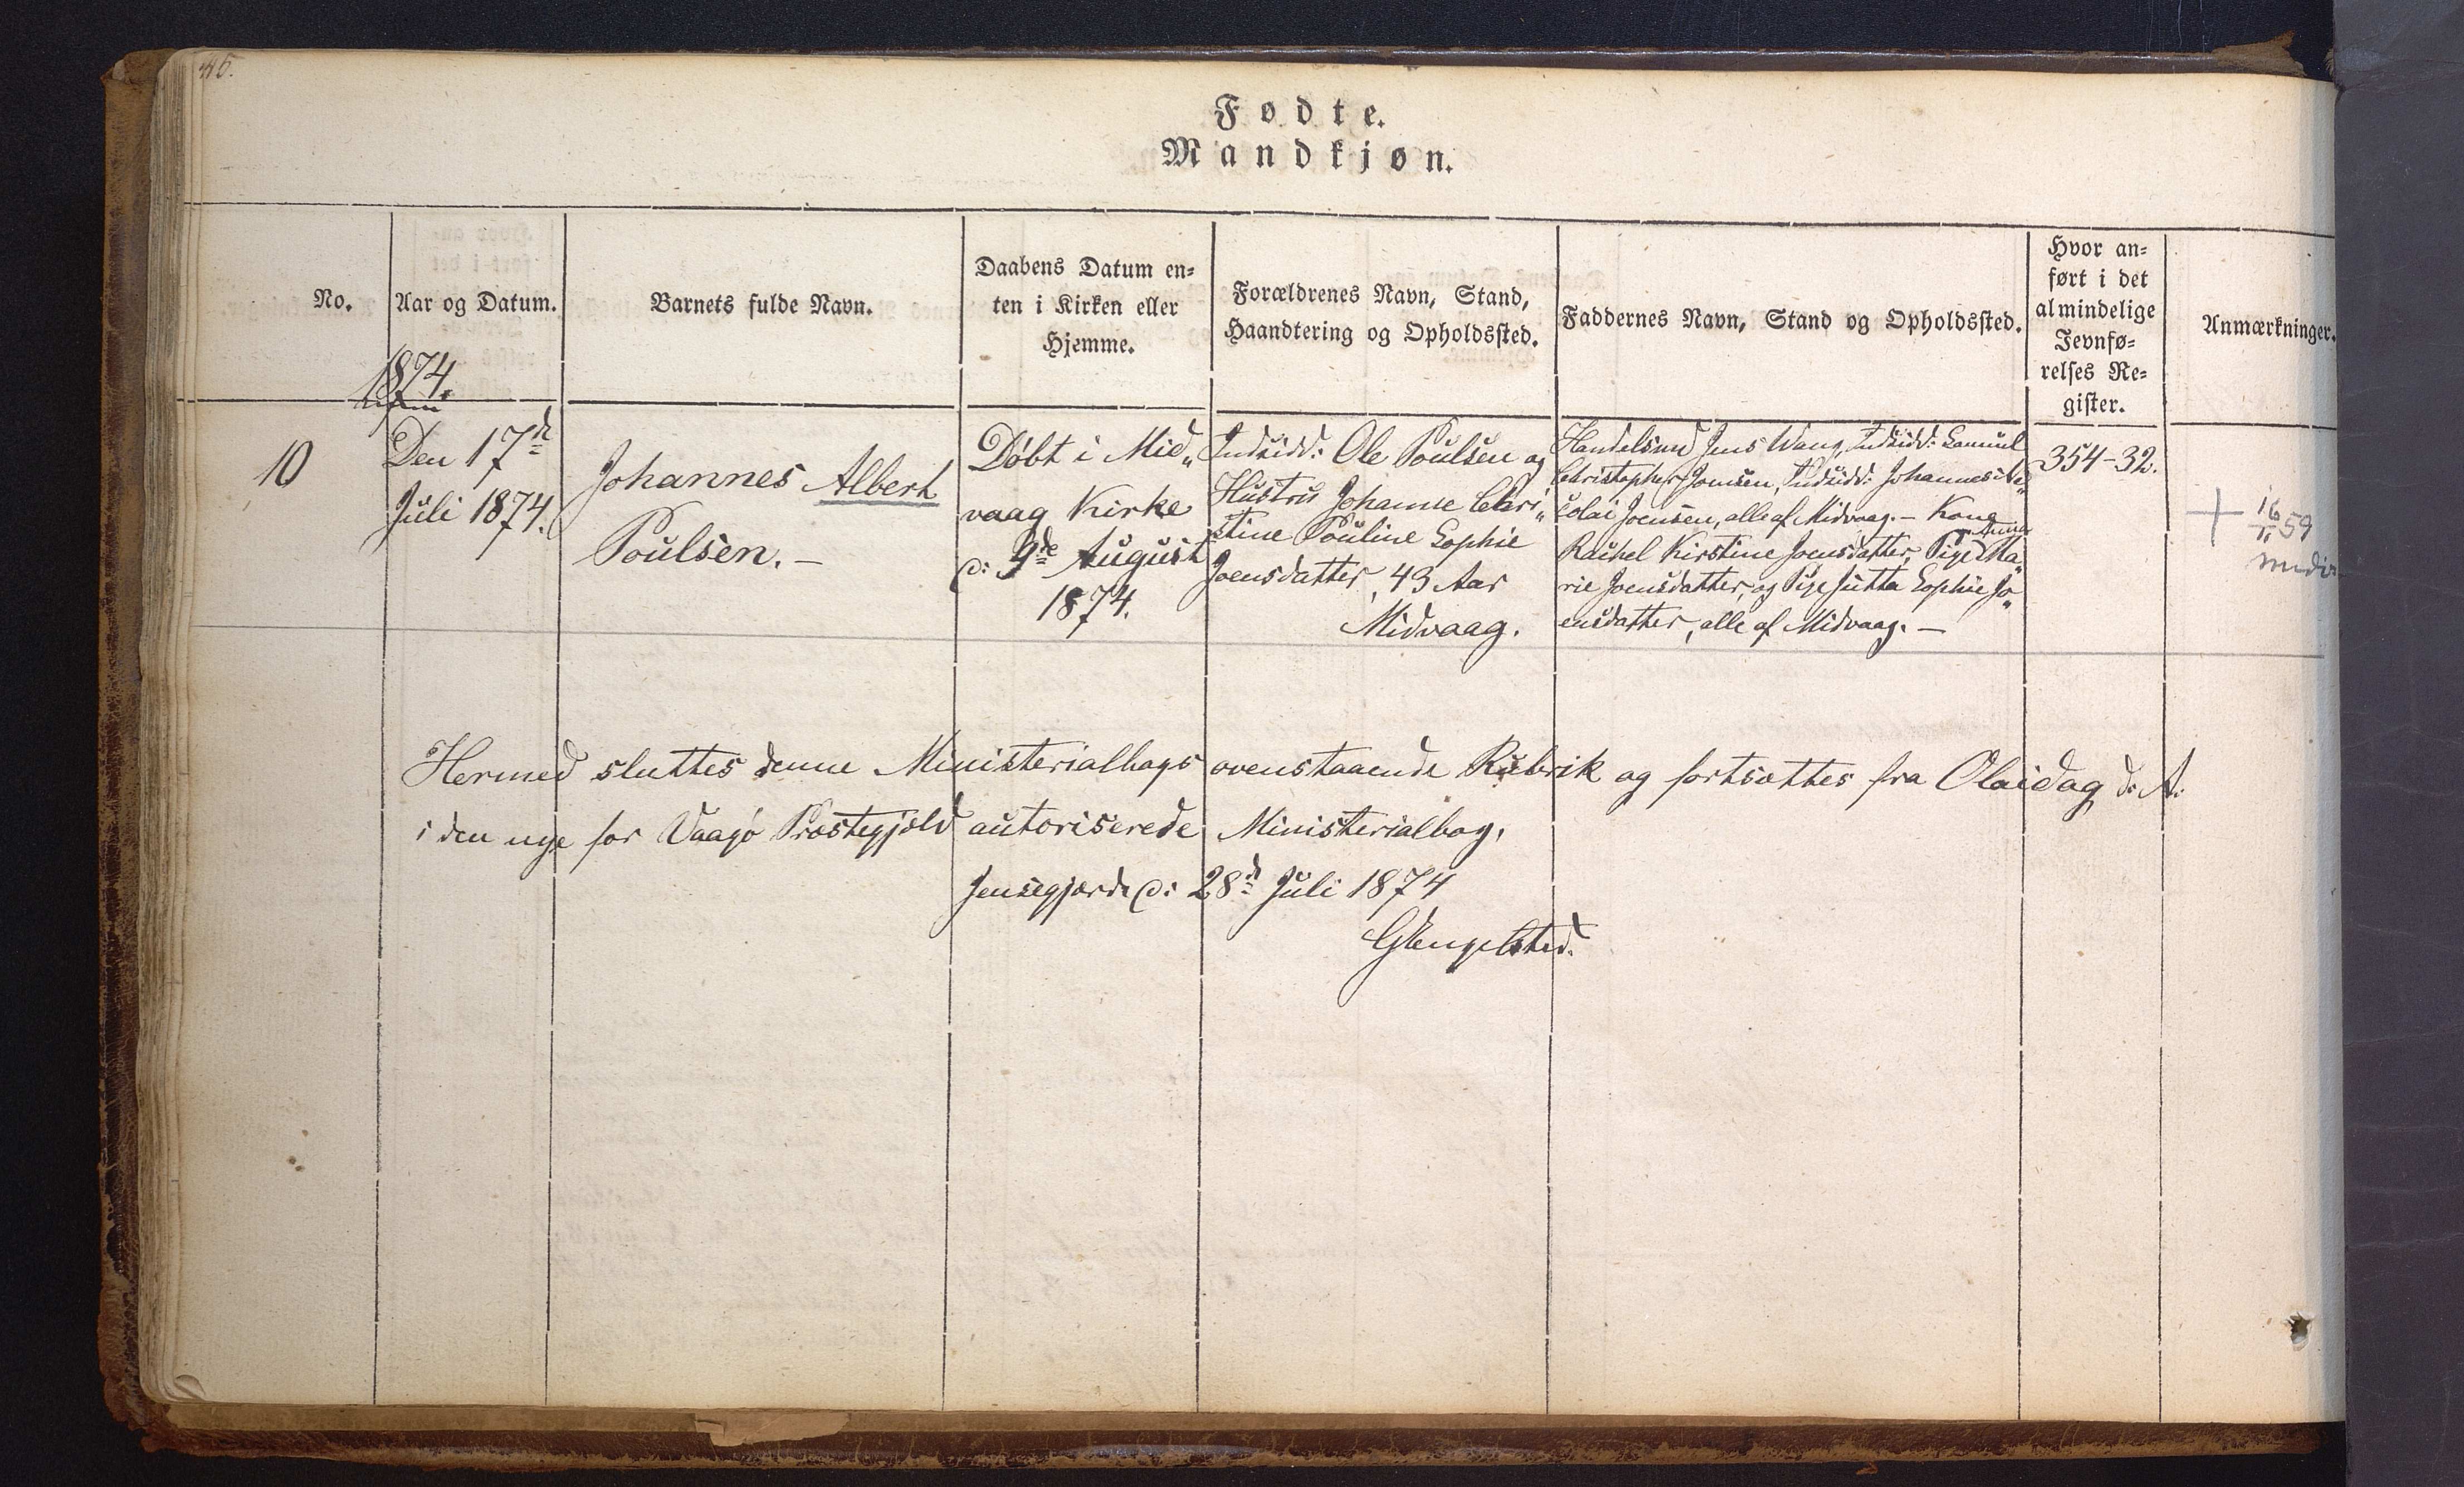 Fødte.
Mandkjøn.
No.
Aar og Datum.
Barnets fulde Navn.
Daabens Datum en-
ten i Kirken eller
Hjemme.
Forældrenes Navn, Stand,
Haandtering og Opholdssted.
Faddernes Navn, Stand og Opholdssted.
Hvor an-
ført i det
almindelige
Jevnfø-
relses Re-
gister.
Anmærkninger.
1874.
10
Den 17d
Juli 1874.
Johannes Albert
Poulsen. –
Døbt i Mid„
vaag Kirke
d: 9de August
1874.
Indsidd: Ole Poulsen og
Hustru Johanne Chri„
stine Pouline Sophie
Joensdatter, 43 Aar
Midvaag.
Handelsmd Jens Wang, Indsidd: Samuel
Christopher Joensen, Indsidd: Johannes Ni„
colai Joensen, alle af Midvaag. – Kone
Rachel Kirstine Joensdatter, Pige Anna Ma„
rie Joensdatter, og Pige Jutta Sophie Jo„
ensdatter, alle af Midvaag. –
354-32.
+ 16/11 59
Hermed sluttes denne Ministerialbogs ovenstaaende Rubrik og fortsættes fra Olaidag d: A:
i den nye for Vaagø Præstegjæld autoriserede Ministerialbog.
Jensegjærde d: 28d Juli 1874
GKengelsted.